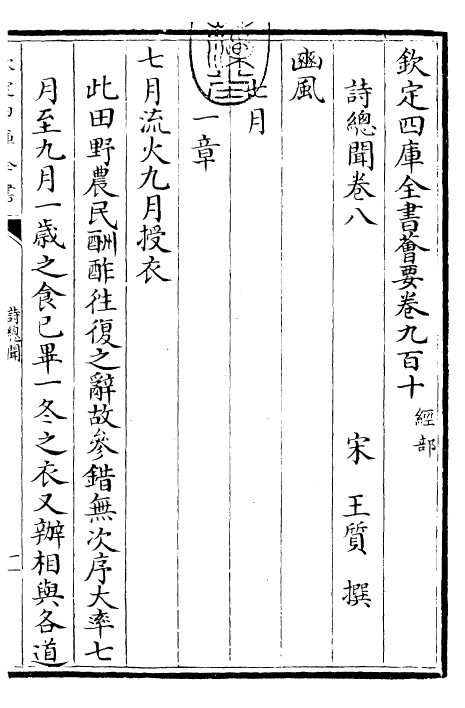 欽定四庫全書薈要卷九百十 經部
詩總聞卷八
宋 王質 撰
豳風
七月
一章
七月流火九月授衣
此田野農民酬酢往復之辭故參錯無次序大率七
月至九月一歲之食已畢一冬之衣又辦相與各道
詩總聞